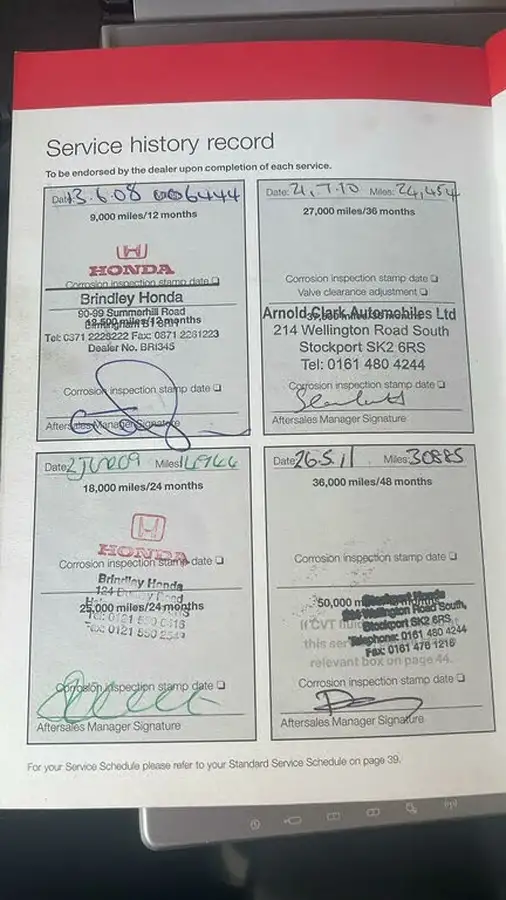 Service history record
To be endorsed by the dealer upon completion of each service.
Date: 13.6.08 006444
9,000 miles/12 months
HONDA
Corrosion inspection stamp date
Brindley Honda
90-99 Summerhill Road
Birmingham
Tel: 0871 2226222 Fax: 0871 2261223
Dealer No. BRI345
Corrosion inspection stamp date
Aftersales Manager Signature
Date: 21.7.10 Miles: 24,454
27,000 miles/36 months
Corrosion inspection stamp date
Valve clearance adjustment
Arnold Clark Automobiles Ltd
214 Wellington Road South
Stockport SK2 6RS
Tel: 0161 480 4244
Corrosion inspection stamp date
Aftersales Manager Signature
Date: 2 JUN 09 Miles: 14966
18,000 miles/24 months
HONDA
Corrosion inspection stamp date
Brindley Honda
25,000 miles/24 months
Fax: 0121 550 2549
Corrosion inspection stamp date
Aftersales Manager Signature
Date: 26.5.11 Miles: 30885
36,000 miles/48 months
Corrosion inspection stamp date
50,000
Wellington Road South,
If CVT
Stockport SK2 6RS
this
Telephone: 0161 480 4244
Fax: 0161 476 1216
relevant box on page 44.
Corrosion inspection stamp date
Aftersales Manager Signature
For your Service Schedule please refer to your Standard Service Schedule on page 39.